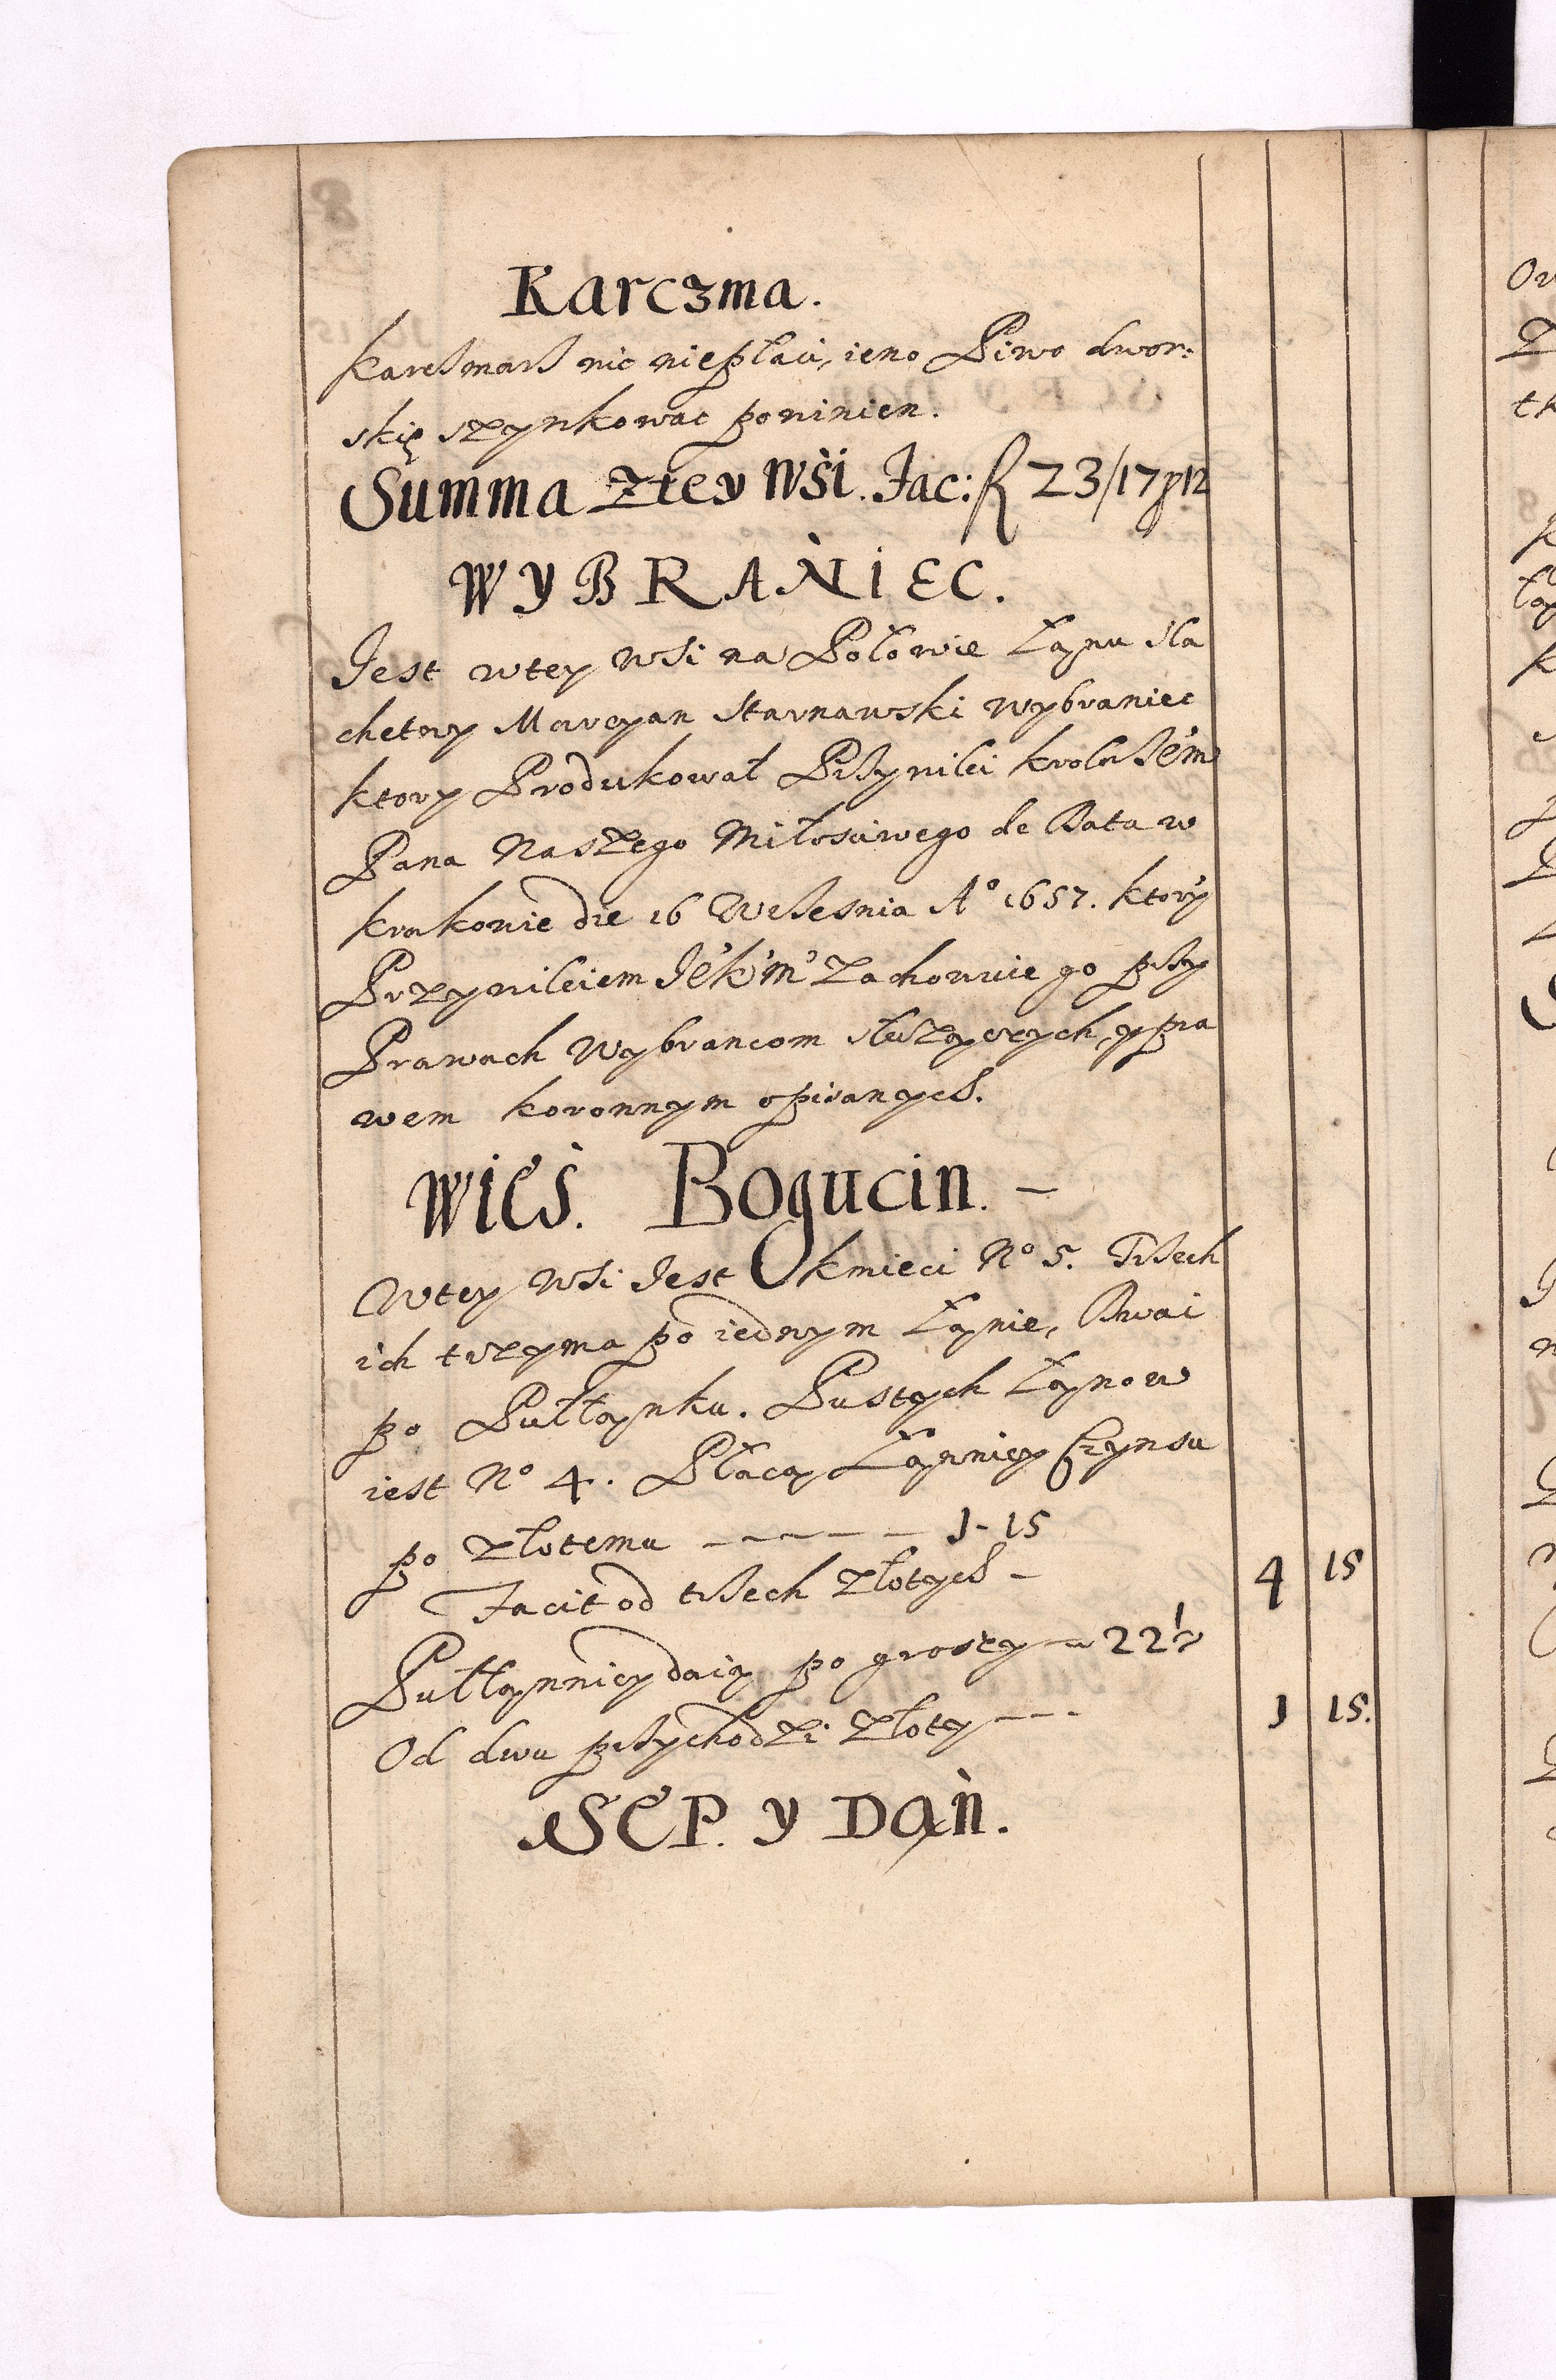 Karczma.
Karczmarz nic niepłaci, ieno Piwo dwor:
skię szynkowac powinien.
Summa ztey Wsi. Fac: f 23/17 p 12
WYBRANIEC.
Jest wtey Wsi na Połowie Łanu sla
chetny Marcyan Starnawski Wybraniec
ktory Produkował Przywilei Krola Jem
Pana Naszego Miłosciwego de Data w
Krakowie die 16 Wrzesnia A° 1657. ktory
Przywileiem JeKm zachowuie go przy
Prawach Wybrancom służących, y pra
wem koronnym opisanych.
Wies. Bogucin. –
Wtey Wsi Jest kmieci N° 5. Trzech
ich trzyma po iednym Łanie, Dwai
po Pułłanku. Pustych Łanow
iest N° 4. Płacą Łannicy Czynsu
po złotemu ––––– 1-15
Facit od trzech złotych – 4 15
Pułłannicy daią po groszy – 22½
Od dwu przychodzi złoty --- 1 15.
SEP. y Dań.